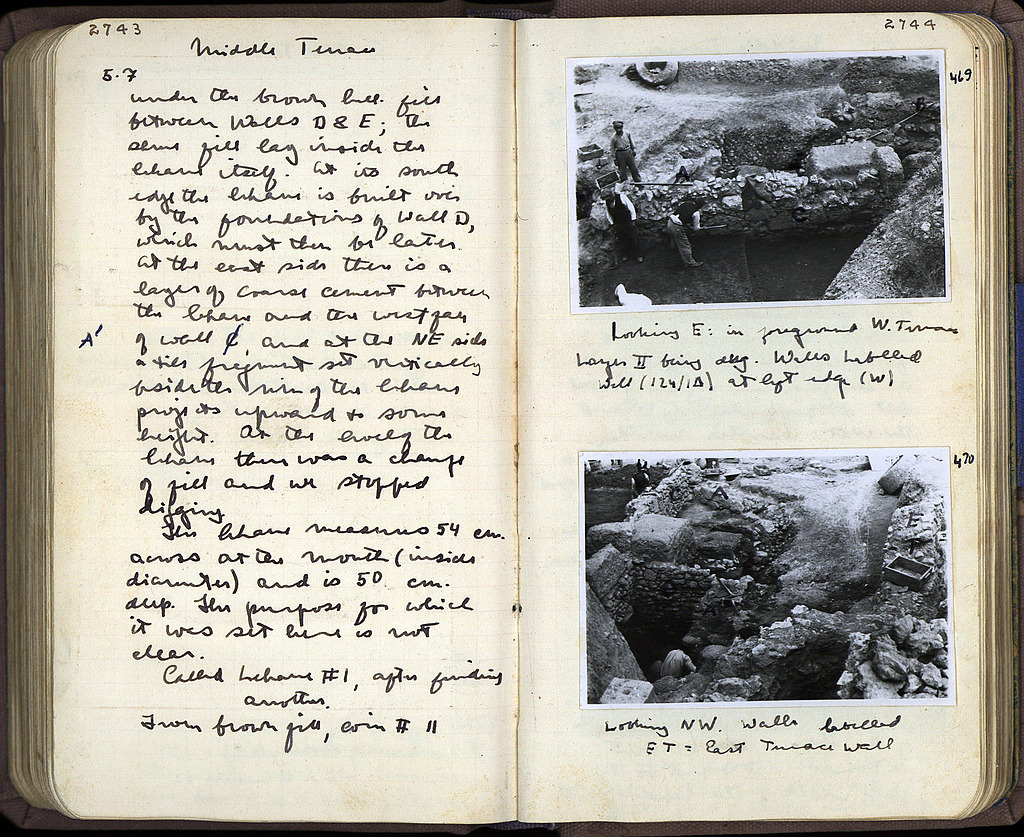 2743
Middle Terrace
5.7
under the brown hill fill
between Walls D & E; the
same fill lay inside the
lekane itself. At its south
edge the lekane is built over
by the foundations of Wall D,
which must then be later.
At the east side there is a
layer of coarse cement between
the lekane and the west face
A'
of wall C, and at the NE side
a tile fragment set vertically
beside the rim of the lekane
projects upward to some
height. At the level of the
lekane there was a change
of fill and we stopped
digging
The lekane measures 54 cm.
across at the mouth (inside
diameter) and is 50 cm.
deep. The purpose for which
it was set here is not
clear.
Called Lekane #1, after finding
another.
From brown fill, coin # 11
2744
469
Looking E: in foreground W. Terrace
Layer II being dug. Walls labelled
Well (124/1Δ) at left edge (W)
470
Looking NW. Walls labelled
ET = East Terrace Wall